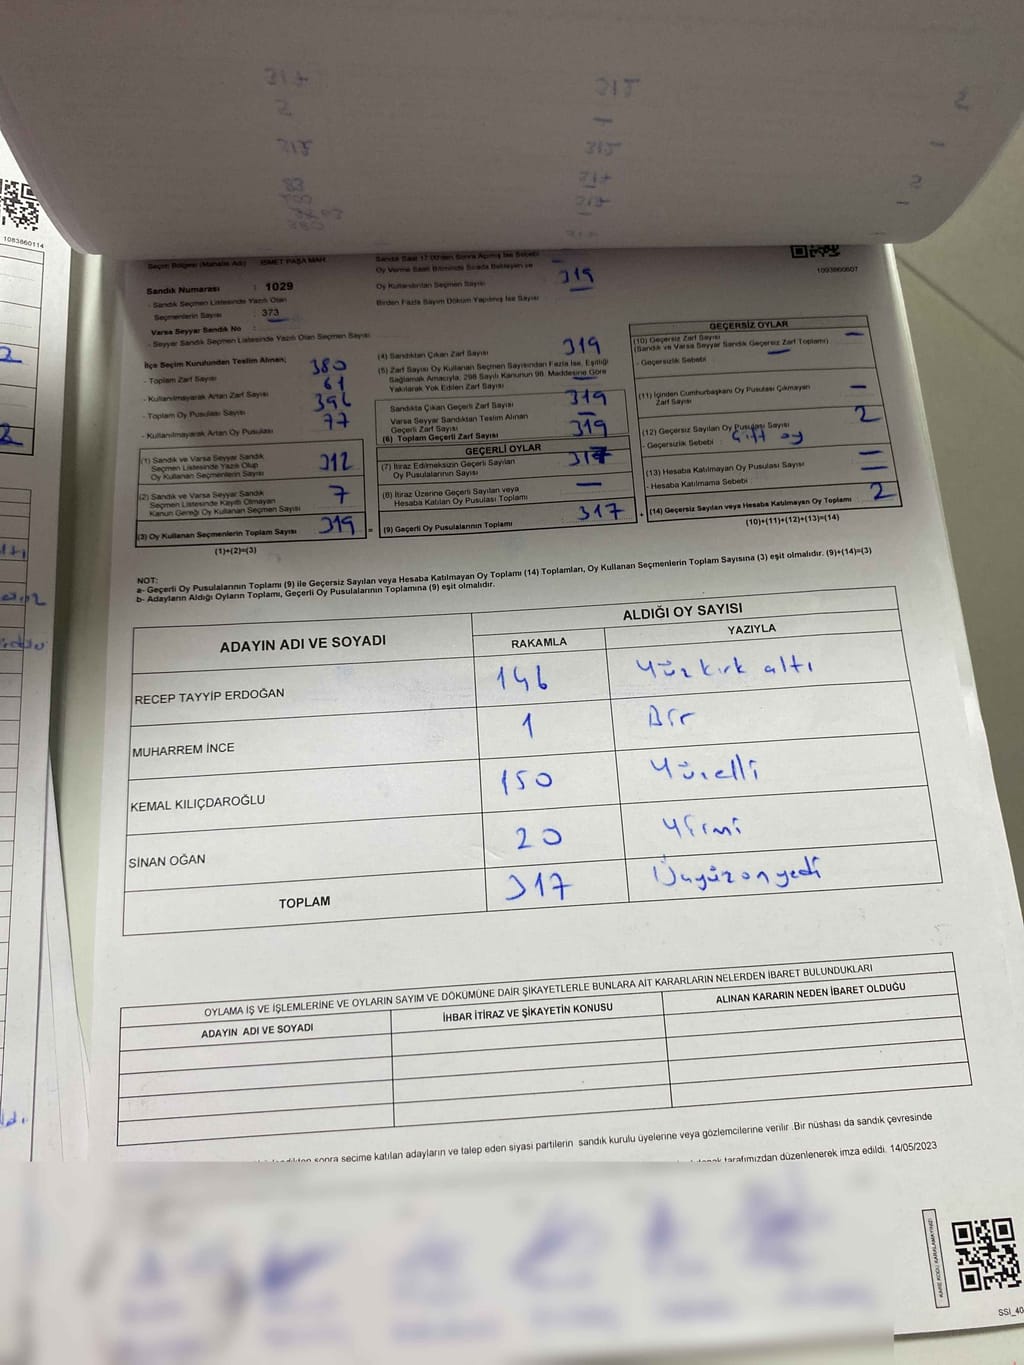 1083860114
Seçim Bölgesi (Mahalle Adı) : İSMET PAŞA MAH.
Sandık Numarası : 1029
- Sandık Seçmen Listesinde Yazılı Olan
Seçmenlerin Sayısı : 373
Varsa Seyyar Sandık No :
- Seyyar Sandık Seçmen Listesinde Yazılı Olan Seçmen Sayısı
Sandık Saat 17:00'den Sonra Açılmış İse Sebebi
Oy Verme Saati Bitiminde Sırada Bekleyen ve
Oy Kullandırılan Seçmen Sayısı 319
Birden Fazla Sayım Döküm Yapılmış İse Sayısı
1093860607
İlçe Seçim Kurulundan Teslim Alınan;
- Toplam Zarf Sayısı 380
- Kullanılmayarak Artan Zarf Sayısı 61
- Toplam Oy Pusulası Sayısı 396
- Kullanılmayarak Artan Oy Pusulası 77
(1) Sandık ve Varsa Seyyar Sandık
Seçmen Listesinde Yazılı Olup
Oy Kullanan Seçmenlerin Sayısı 312
(2) Sandık ve Varsa Seyyar Sandık
Seçmen Listesinde Kayıtlı Olmayan
Kanun Gereği Oy Kullanan Seçmen Sayısı 7
(3) Oy Kullanan Seçmenlerin Toplam Sayısı 319 =
(1)+(2)=(3)
(4) Sandıktan Çıkan Zarf Sayısı 319
(5) Zarf Sayısı Oy Kullanan Seçmen Sayısından Fazla İse, Eşitliği
Sağlamak Amacıyla, 298 Sayılı Kanunun 98. Maddesine Göre
Yakılarak Yok Edilen Zarf Sayısı
Sandıkta Çıkan Geçerli Zarf Sayısı 319
Varsa Seyyar Sandıktan Teslim Alınan
Geçerli Zarf Sayısı —
(6) Toplam Geçerli Zarf Sayısı 319
GEÇERLİ OYLAR
(7) İtiraz Edilmeksizin Geçerli Sayılan
Oy Pusulalarının Sayısı 317
(8) İtiraz Üzerine Geçerli Sayılan veya
Hesaba Katılan Oy Pusulası Toplamı —
(9) Geçerli Oy Pusulalarının Toplamı 317 +
GEÇERSİZ OYLAR
(10) Geçersiz Zarf Sayısı —
(Sandık ve Varsa Seyyar Sandık Geçersiz Zarf Toplamı)
- Geçersizlik Sebebi :
(11) İçinden Cumhurbaşkanı Oy Pusulası Çıkmayan
Zarf Sayısı —
(12) Geçersiz Sayılan Oy Pusulası Sayısı 2
- Geçersizlik Sebebi : Çift oy
(13) Hesaba Katılmayan Oy Pusulası Sayısı —
- Hesaba Katılmama Sebebi : —
(14) Geçersiz Sayılan veya Hesaba Katılmayan Oy Toplamı 2
(10)+(11)+(12)+(13)=(14)
NOT:
a- Geçerli Oy Pusulalarının Toplamı (9) ile Geçersiz Sayılan veya Hesaba Katılmayan Oy Toplamı (14) Toplamları, Oy Kullanan Seçmenlerin Toplam Sayısına (3) eşit olmalıdır. (9)+(14)=(3)
b- Adayların Aldığı Oyların Toplamı, Geçerli Oy Pusulalarının Toplamına (9) eşit olmalıdır.
ADAYIN ADI VE SOYADI
ALDIĞI OY SAYISI
RAKAMLA YAZIYLA
RECEP TAYYİP ERDOĞAN 146 Yüz kırk altı
MUHARREM İNCE 1 Bir
KEMAL KILIÇDAROĞLU 150 Yüzelli
SİNAN OĞAN 20 Yirmi
TOPLAM 317 Üçyüzonyedi
OYLAMA İŞ VE İŞLEMLERİNE VE OYLARIN SAYIM VE DÖKÜMÜNE DAİR ŞİKAYETLERLE BUNLARA AİT KARARLARIN NELERDEN İBARET BULUNDUKLARI
ADAYIN ADI VE SOYADI İHBAR İTİRAZ VE ŞİKAYETİN KONUSU ALINAN KARARIN NEDEN İBARET OLDUĞU
sonra seçime katılan adayların ve talep eden siyasi partilerin sandık kurulu üyelerine veya gözlemcilerine verilir .Bir nüshası da sandık çevresinde
tarafımızdan düzenlenerek imza edildi. 14/05/2023
KARE KODU KARALAMAYINIZ!
SSI_40